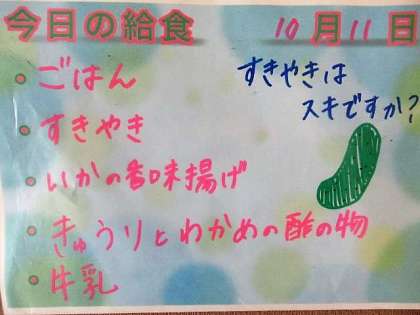 今日の給食 10月11日
・ごはん
・すきやき
・いかの香味揚げ
・きゅうりとわかめの酢の物
・牛乳
すきやきは
スキですか?